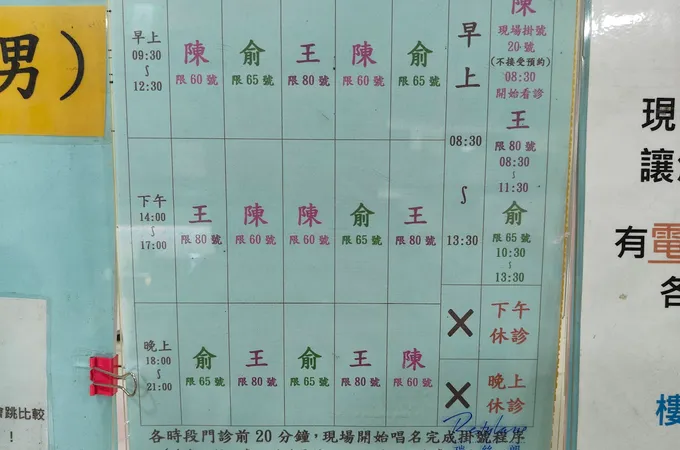 男）
早上
09:30
～
12:30
陳
限60號
俞
限65號
王
限80號
陳
限60號
俞
限65號
早
上
08:30
～
13:30
陳
現場掛號
20號
(不接受預約)
08:30
開始看診
王
限80號
08:30
～
11:30
俞
限65號
10:30
～
13:30
下午
14:00
～
17:00
王
限80號
陳
限60號
陳
限60號
俞
限65號
王
限80號
✕
下午
休診
晚上
18:00
～
21:00
俞
限65號
王
限80號
俞
限65號
王
限80號
陳
限60號
✕
晚上
休診
各時段門診前20分鐘，現場開始唱名完成掛號程序
會跳比較
！
現
讓
有電
各
樓